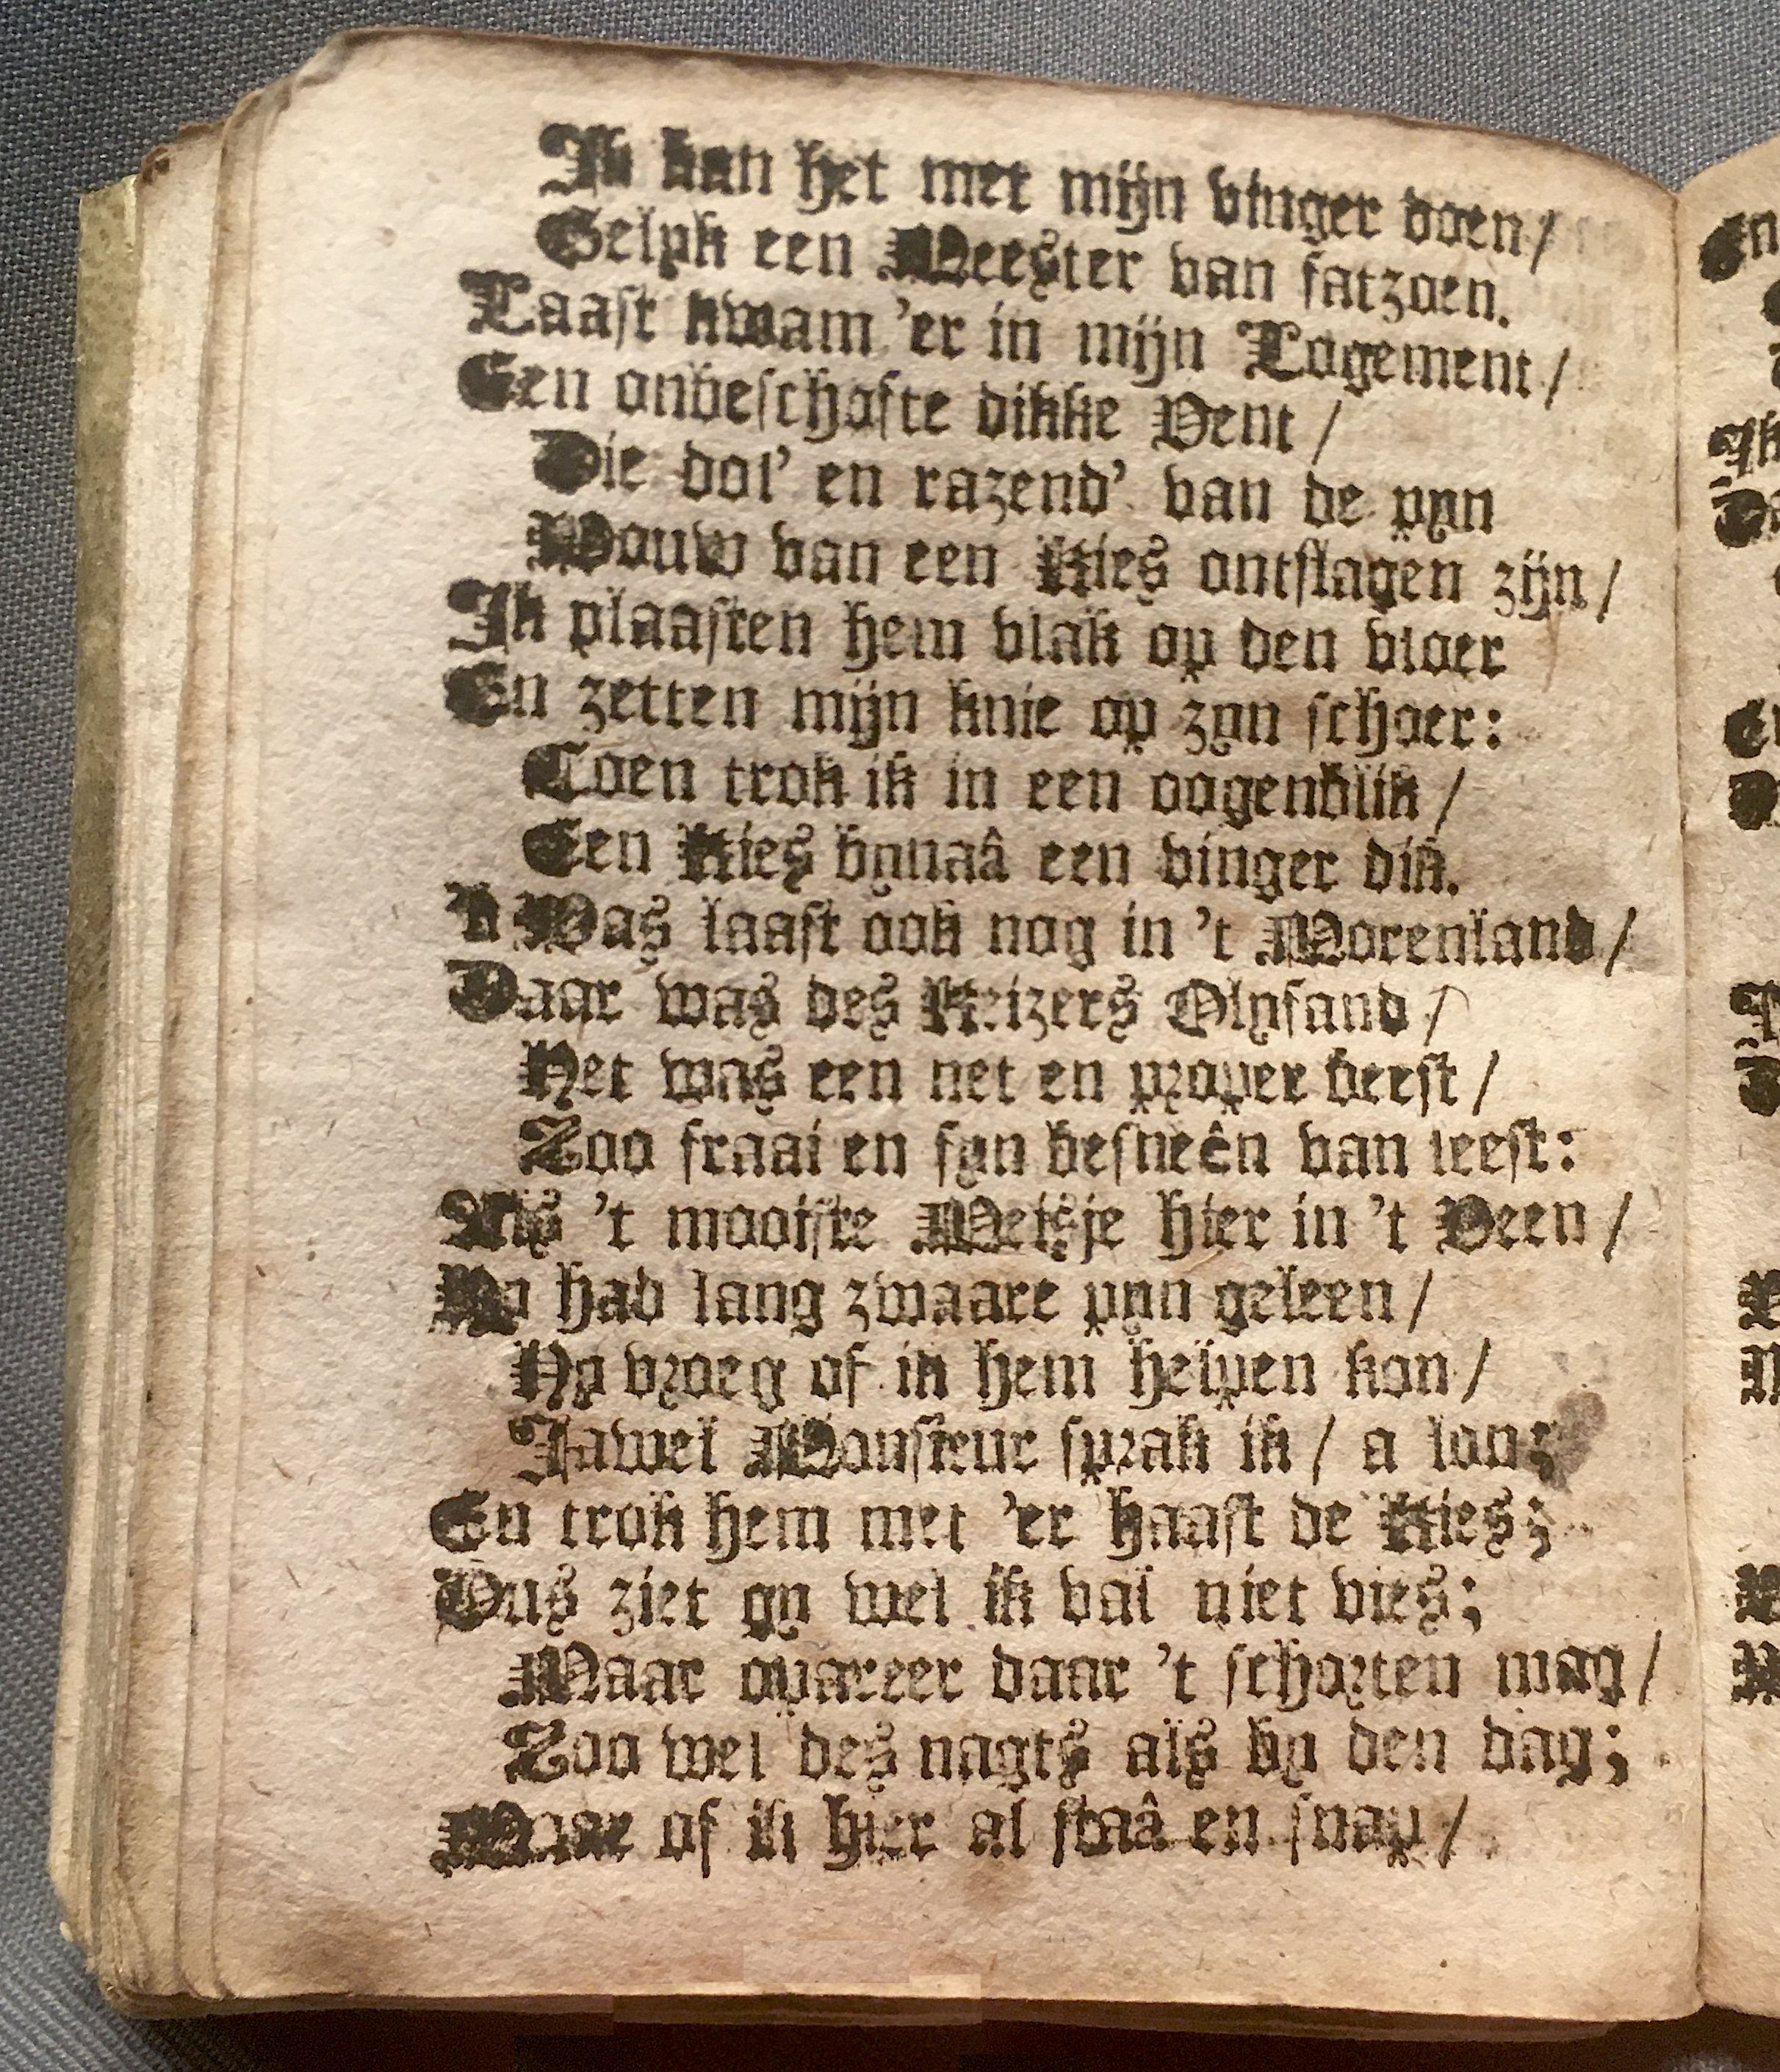 Ik kan het met mijn vinger doen /
Gelyk een Meester van fatzoen.
Laast kwam 'er in mijn Logement /
Een onbeschofte dikke Vent /
Die dol' en razend' van de pyn
Wouw van een Kies ontslagen zijn /
Ik plaasten hem vlak op den vloer
En zetten mijn knie op zyn schoer:
Toen trok ik in een oogenblik /
Een Kies bynaâ een vinger dik.
'k Was laast ook nog in 't Morenland /
Daar was des Keizers Olyfand /
Het was een net en proper beest /
Zoo fraai en fyn besneên van leest:
Als 't mooiste Meisje hier in 't Veen /
Hy had lang zwaare pyn geleen /
Hy vroeg of ik hem helpen kon /
Jawel Monsieur sprak ik / a lon;
En trok hem met 'er haast de Kies;
Dus ziet gy wel ik val niet vies;
Maar opareer daar 't schorten mag /
Zoo wel des nagts als by den dag;
Maar of ik hier al staâ en snap /